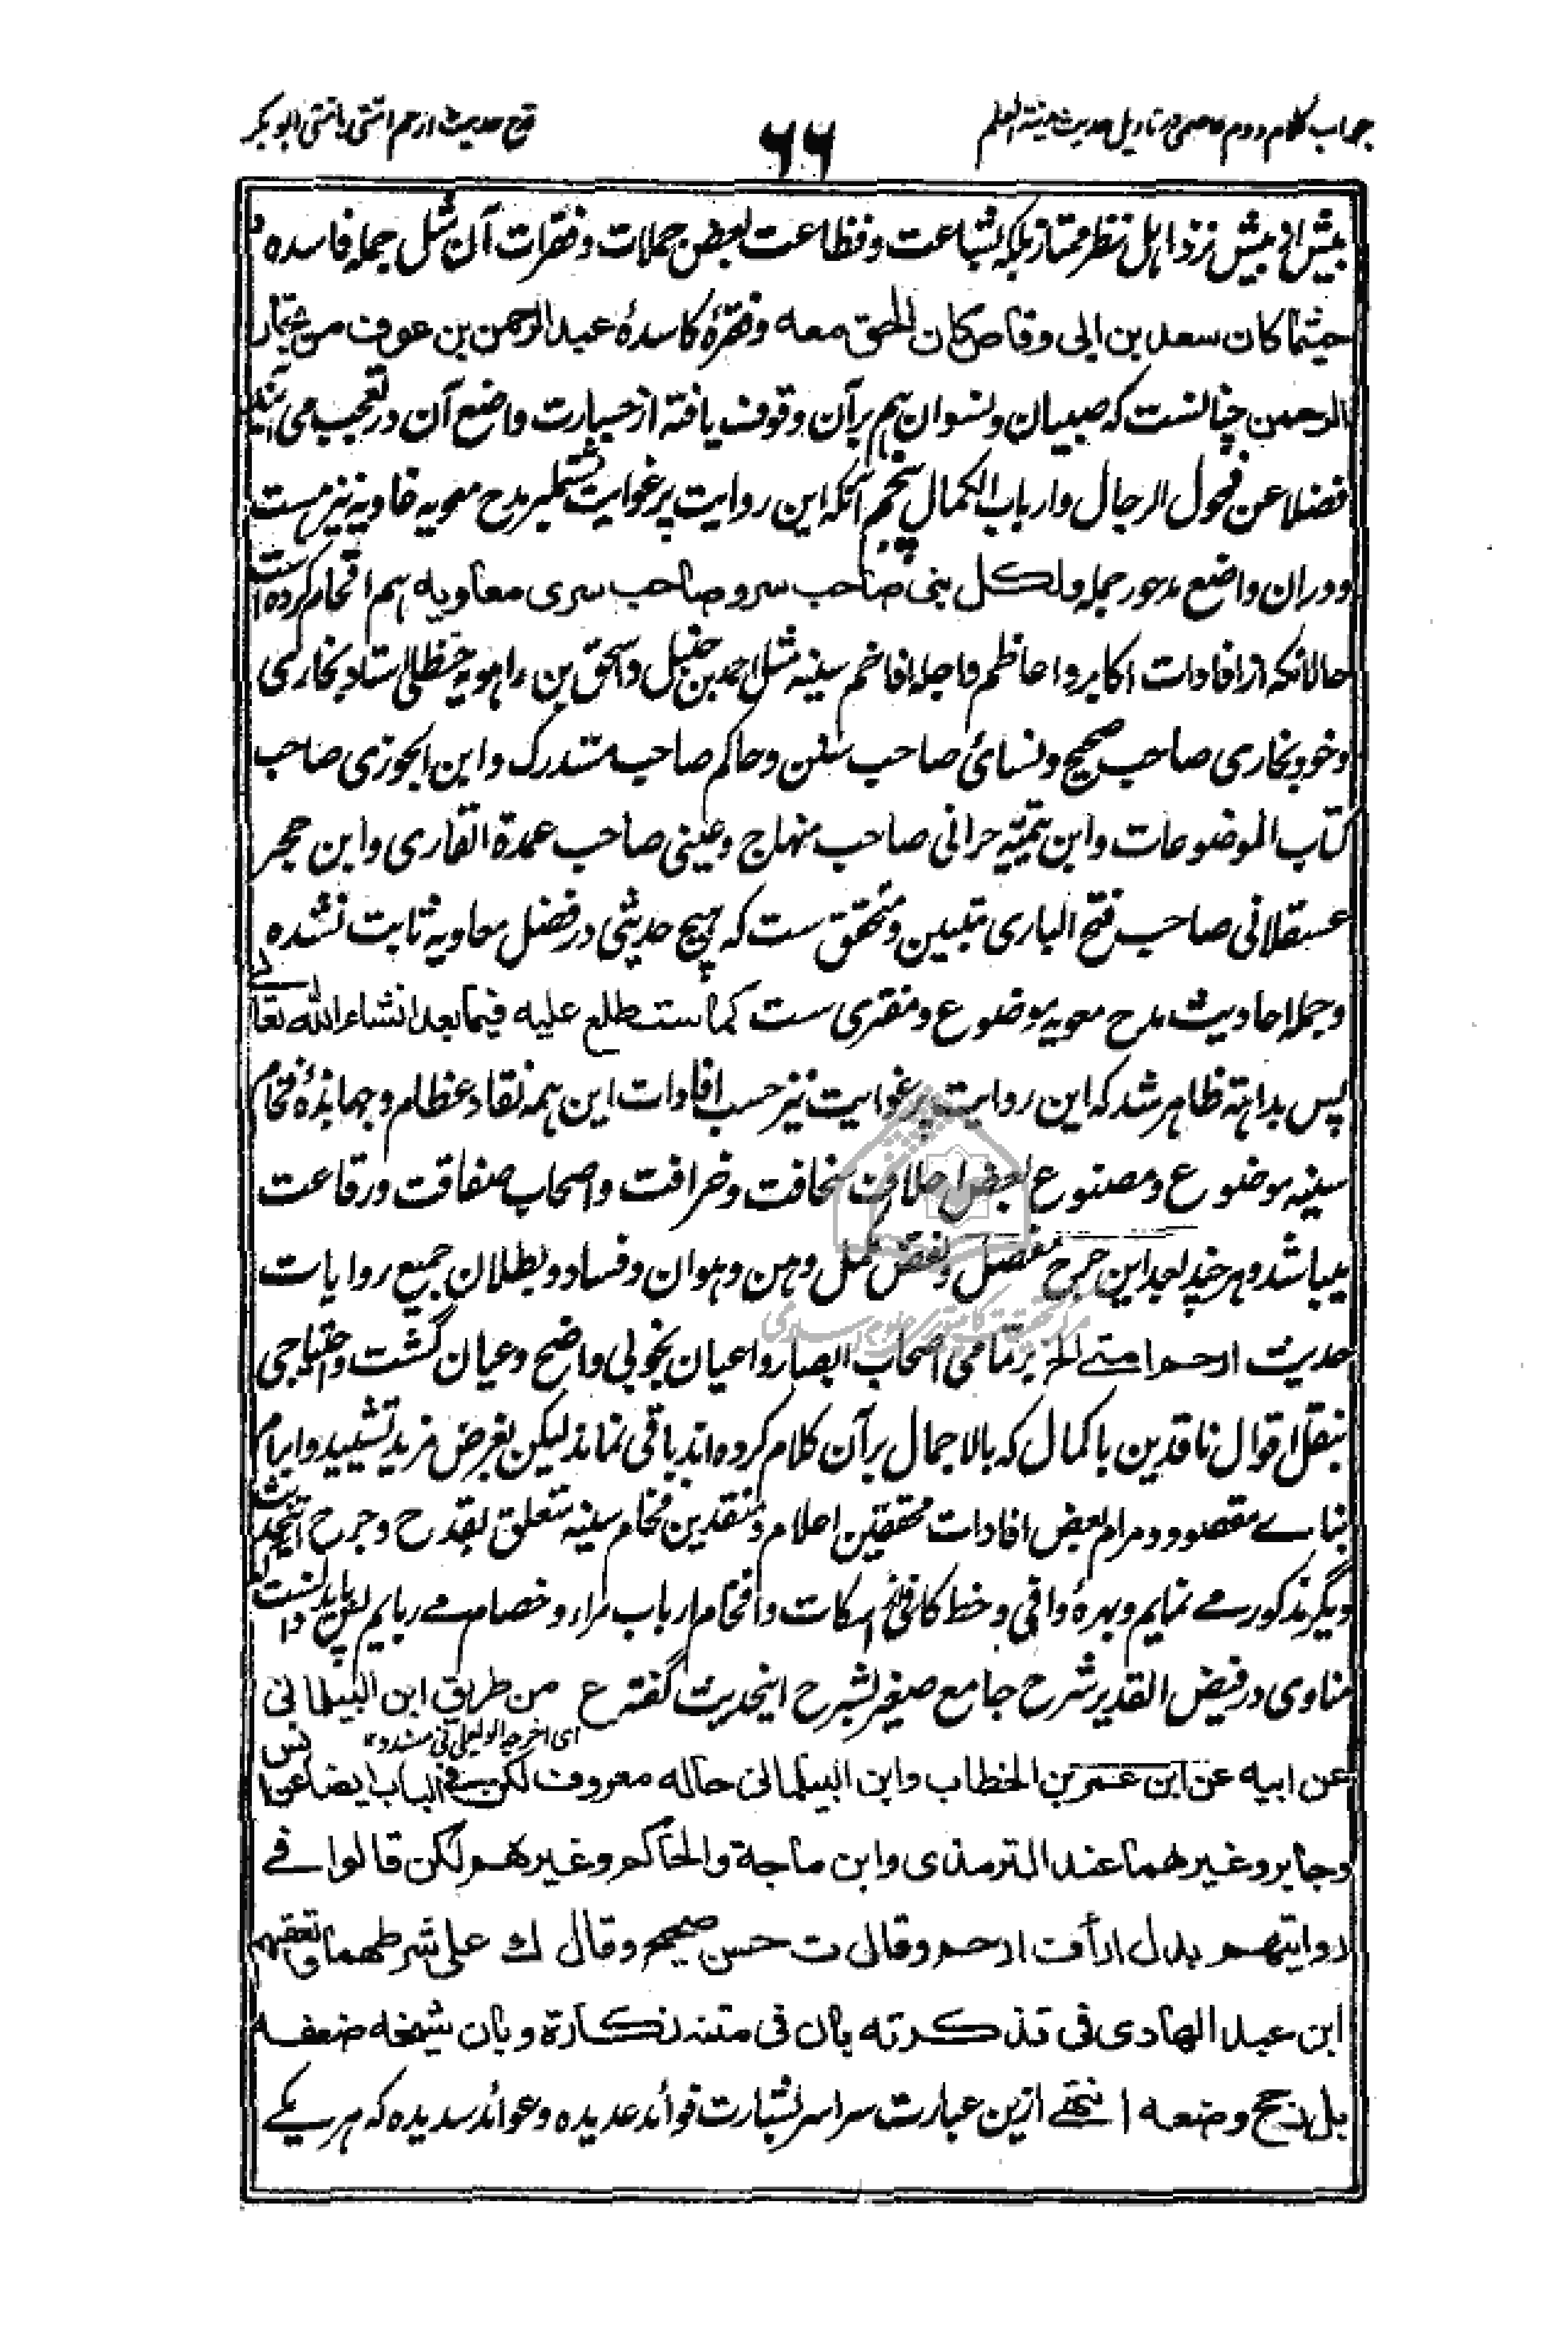 جواب کلام دوم عاصمی در تاویل حدیث مدینة العلم
۶۶
قدح حدیث ارحم امتی بامتی ابو بکر
بیش از بیش نزد اہل نظر ممتاز بلکہ بشاعت و فظاعت بعض جملات و فقرات آن مثل جملہ فاسدہ
حیثما کان سعد بن ابی وقاص کان الحق معه و فقرۂ کاسدۂ عبد الرحمن بن عوف من تجار
الرحمن چنانست کہ صبیان و نسوان ہم بر آن وقوف یافتہ از جسارت واضع آن در تعجب می آیند
فضلا عن فحول الرجال وارباب الکمال پنجم آنکہ این روایت پر غوایت مشتمل بر مدح معویہ غاویہ نیز ہست
و در ان واضع مدحور جملہ ولکل نبی صاحب سر وصاحب سری معاویه ہم اقحام کردہ است
حالانکہ از افادات اکابر و اعاظم و اجلہ افاخم سنیہ مثل احمد بن حنبل و اسحق بن راہویہ حنظلی استاد بخاری
و خود بخاری صاحب صحیح و نسائی صاحب سنن و حاکم صاحب مستدرک و ابن الجوزی صاحب
کتاب الموضوعات و ابن تیمیہ حرانی صاحب منہاج و عینی صاحب عمدة القاری و ابن حجر
عسقلانی صاحب فتح الباری متبین و متحقق ست کہ ہیچ حدیثی در فضل معاویہ ثابت نشدہ
و جملہ احادیث مدح معویہ موضوع و مفتری ست کما ستطلع علیه فیما بعد انشاء الله تعالی
پس بداہتہ ظاہر شد کہ این روایت پر غوایت نیز حسب افادات این ہمہ نقاد عظام و جہابذۂ فخام
سنیہ موضوع و مصنوع بعض احلاف سخافت و خرافت و اصحاب صفاقت و رقاعت
میباشد و ہر چند بعد این جرح مفصل و نقض مکمل وہن و ہوان و فساد و بطلان جمیع روایات
حدیث ارحم امتی الخ بر تمامی اصحاب ابصار و اعیان بخوبی واضح و عیان گشت و احتیاجی
بنقل اقوال ناقدین با کمال کہ بالاجمال بر آن کلام کردہ اند باقی نماند لیکن بغرض مزید تشیید و ابرام
بنای مقصود و مرام بعض افادات محققین اعلام و منقدین فخام سنیہ متعلق بقدح و جرح اینحدیث
دیگر مذکور می نمایم و بہرۂ وافی و حظ کافی اسکات و افحام ارباب مراء و خصام می ربایم پس باید دانست کہ
مناوی در فیض القدیر شرح جامع صغیر بشرح اینحدیث گفتہ ع من طریق ابن البیلمانی
ای اخرجه ابو یعلی فی مسنده
عن ابیه عن ابن عمر بن الخطاب وابن البیلمانی حاله معروف لکن فی الباب ایضا عن انس
وجابر وغیرهما عند الترمذی وابن ماجة والحاکم وغیرهم لکن قالوا فی
روایتهم بدل ارأف ارحم وقال ت حسن صحیح وقال ک علی شرطهما وتعقبهم
ابن عبد الهادی فی تذکرته بان فی متنه نکارة وبان شیخه ضعفه
بل رجح وضعه انتهی ازین عبارت سراسر بشارت فوائد عدیدہ و عوائد سدیدہ کہ ہر یکے